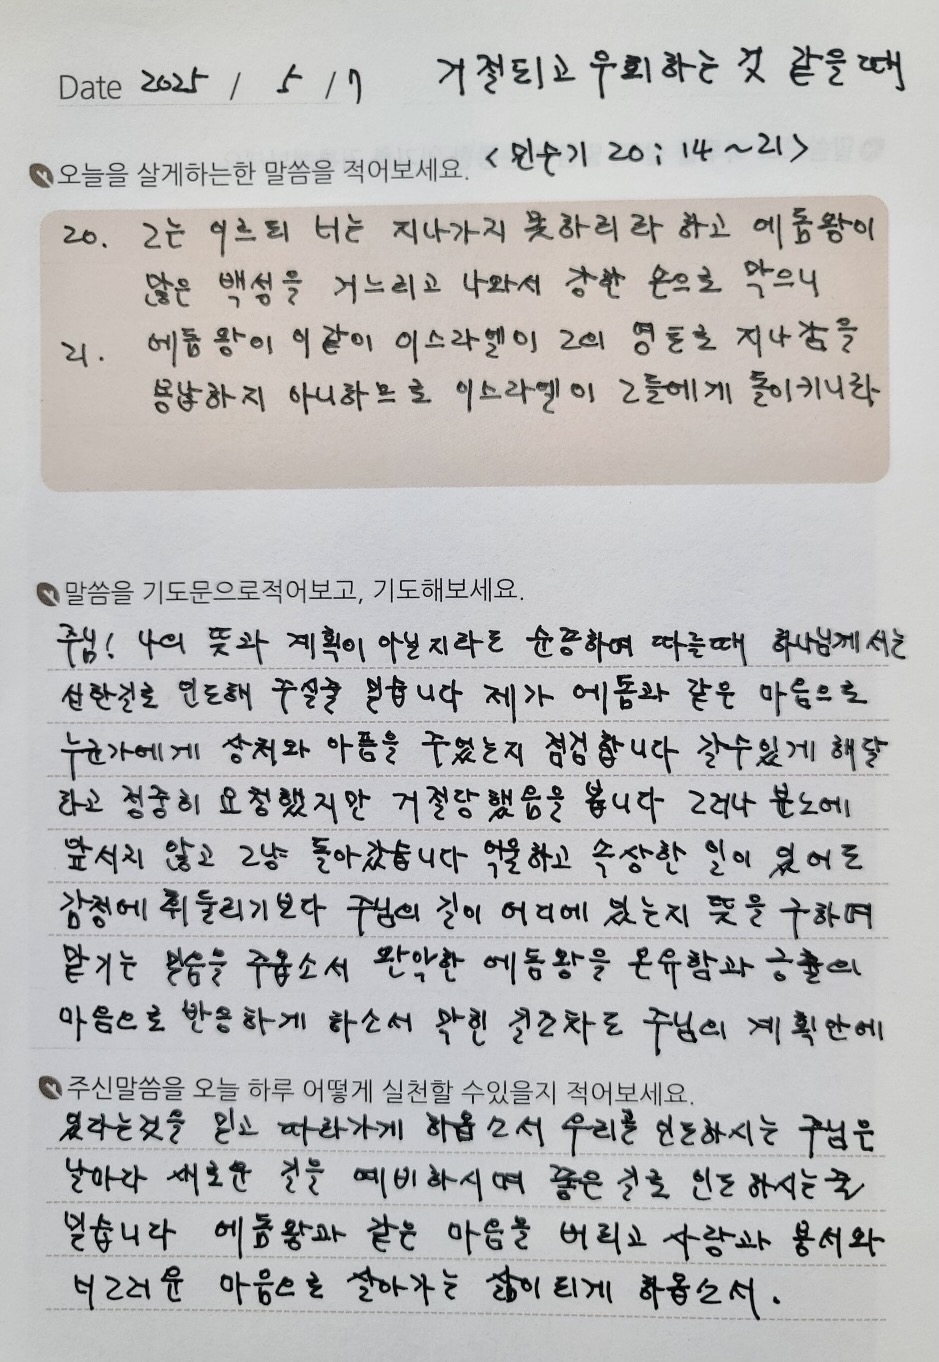 Date 2025 / 5 / 7 거절되고 우회하는 것 같을때
오늘을 살게하는한 말씀을 적어보세요. <민수기 20:14~21>
20. 그는 이르되 너는 지나가지 못하리라 하고 에돔왕이
많은 백성을 거느리고 나와서 강한 손으로 막으니
21. 에돔 왕이 이같이 이스라엘이 그의 영토로 지나감을
용납하지 아니하므로 이스라엘이 그들에게 돌이키니라
말씀을 기도문으로적어보고, 기도해보세요.
주님! 나의 뜻과 계획이 아닐지라도 순종하며 따를때 하나님께서는
선한길로 인도해 주실줄 믿습니다 제가 에돔과 같은 마음으로
누군가에게 상처와 아픔을 주었는지 점검합니다 갈수있게 해달
라고 정중히 요청했지만 거절당했음을 봅니다 그러나 분노에
앞서지 않고 그냥 돌아갔습니다 억울하고 속상한 일이 있어도
감정에 휘둘리기보다 주님의 길이 어디에 있는지 뜻을 구하며
맡기는 믿음을 주옵소서 완악한 에돔왕을 온유함과 긍휼의
마음으로 반응하게 하소서 막힌 길조차도 주님의 계획안에
주신말씀을 오늘 하루 어떻게 실천할 수있을지 적어보세요.
있다는것을 믿고 따라가게 하옵소서 우리를 인도하시는 주님은
날마다 새로운 길을 예비하시며 좋은 길로 인도하시는줄
믿습니다 에돔왕과 같은 마음을 버리고 사랑과 용서와
너그러운 마음으로 살아가는 삶이되게 하옵소서.